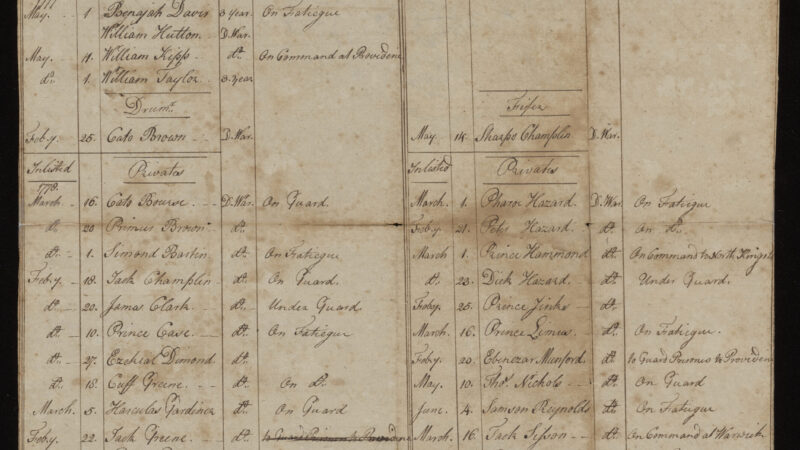 May. 1 Benajah Davis 3 Year On Fatiegue
William Hutton D.War.
May. 11. William Kipp. dº. On Command at Providence
dº. 1. William Taylor 3 Year
Drumr.
Feby. 25. Cato Brown D.War.
Inlisted Privates
1778.
March 16. Cato Bourse D.War. On Guard
dº. 20 Primus Brown dº.
dº. 1. Simond Bartin dº. On Fatiegue
Feby. 18. Jack Champlin dº. On Guard.
dº. 20. James Clark dº. Under Guard
dº. 10. Prince Case. dº. On Fatiegue
dº. 27. Ezekial Dimond dº.
dº. 18. Cuff Greene. dº. On dº.
March. 5. Harculas Gardiner dº. On Guard
Feby. 22. Jack Greene. dº. to Guard Prisoners to Providence
Fifer
May 14. Sharpo Champlin D.War.
Inlisted Privates
March. 1. Pharoe Hazard D.War. On Fatiegue
Feby. 21. Peter Hazard. dº. On dº.
March 1. Prince Hammond dº. On Command to North Kingst
dº. 23. Dick Hazard. dº. Under Guard.
Feby. 25. Prince Jinks dº.
March. 16. Prince Limus. dº. On Fatiegue.
Feby. 20. Ebenezar Munford. dº. to Guard Prisoners to Providence
May. 10. Thoˢ. Nichols dº. On Guard
June. 4. Samson Reynolds dº. On Fatiegue
March. 16. Jack Sisson dº. On Command at Warwick